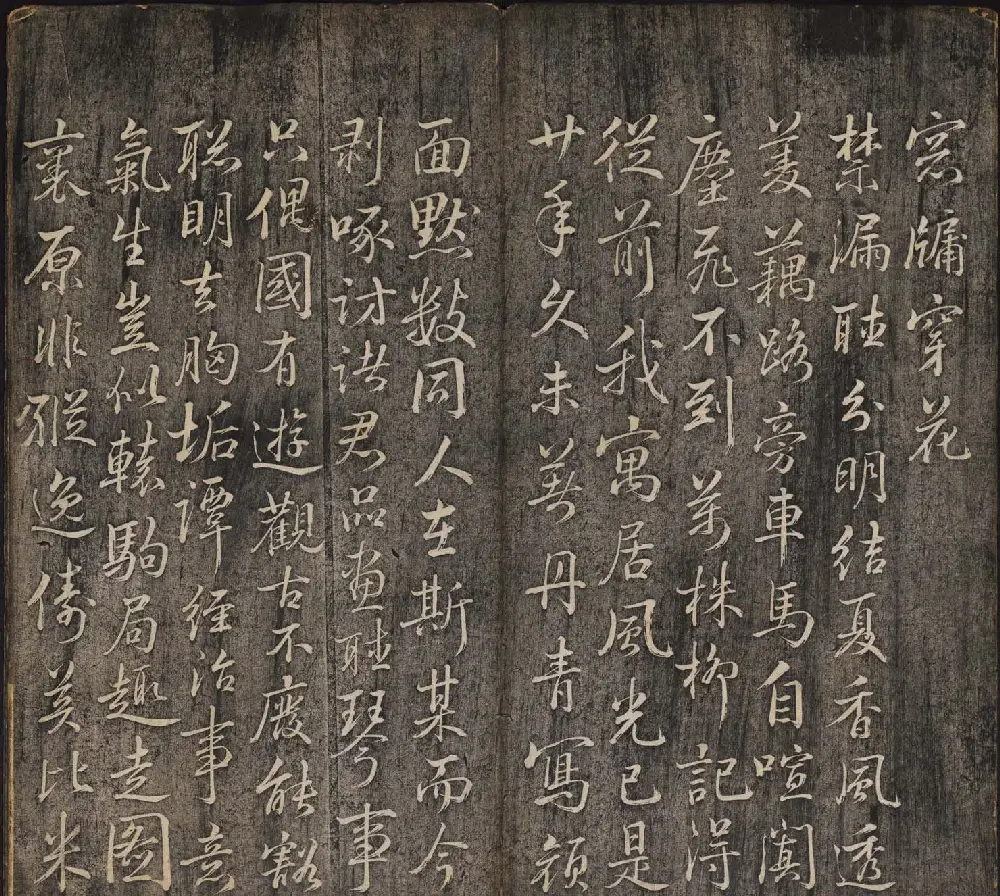 窓牖穿花
禁漏聴分明結夏香風透
芰藕路旁車馬自喧闐
塵飛不到萬株柳記得
從前我寓居風光已是
廿年久未募丹青寫頍
面黙数同人在斯某而今
剥啄討讲君品畫聴琴事
只偶國有遊觀古不廢能豁
聡明去胸垢譚經治事意
氣生豈似轅駒局趣走图
襄原非縱逸儔莫比米